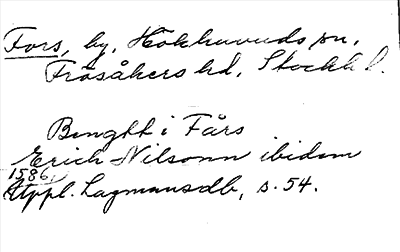 Fors, by, Hökhuvuds sn,
Frösåkers hd, Stockh l.
Bengtt i Fårs
Erich Nilsonn ibidem
1586.
Uppl. Lagmansdb, s. 54.